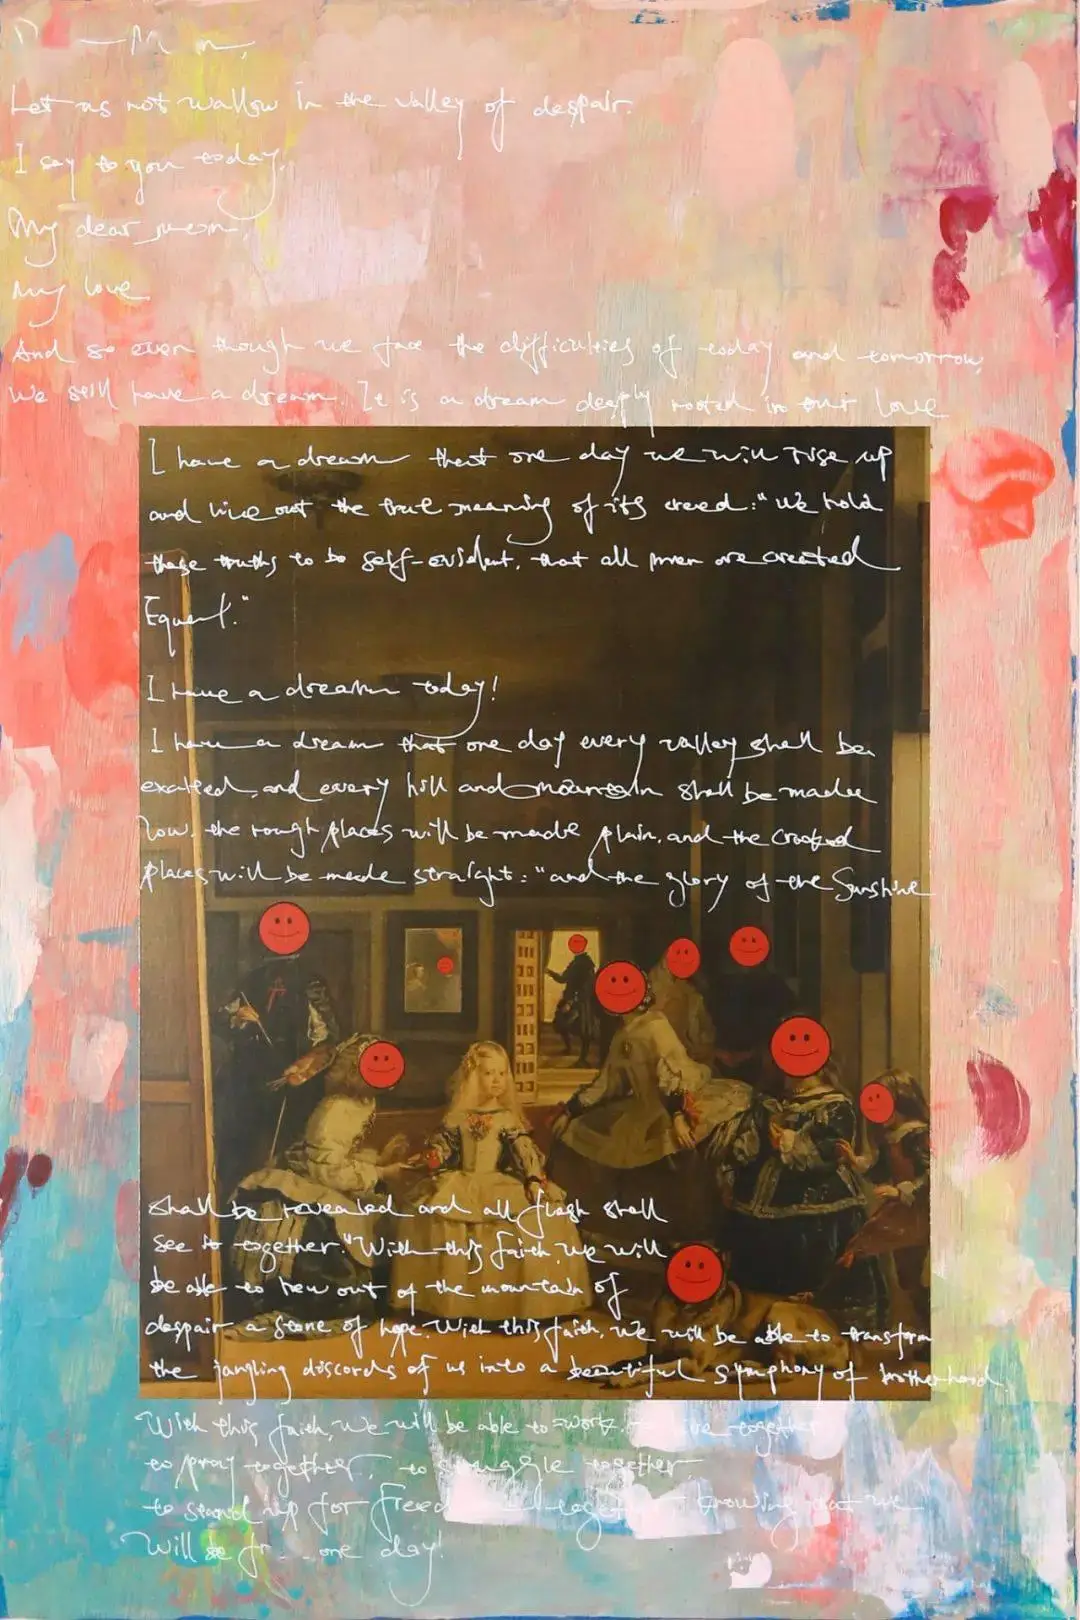 Let us not wallow in the valley of despair.
I say to you today,
My dear
My love.
And so even though we face the difficulties of today and tomorrow,
We still have a dream. It is a dream deeply rooted in our love
I have a dream that one day we will rise up
and live out the true meaning of its creed: "We hold
these truths to be self-evident, that all men are created
Equal."
I have a dream today!
I have a dream that one day every valley shall be
exalted, and every hill and mountain shall be made
low, the rough places will be made plain, and the crooked
places will be made straight: "and the glory of the Sunshine
shall be revealed and all flesh shall
see it together." With this faith, we will
be able to hew out of the mountain of
despair a stone of hope. With this faith, we will be able to transform
the jangling discords of us into a beautiful symphony of brotherhood.
With this faith, we will be able to work together
to pray together, to struggle together,
to stand up for knowing that we
Will be one day!